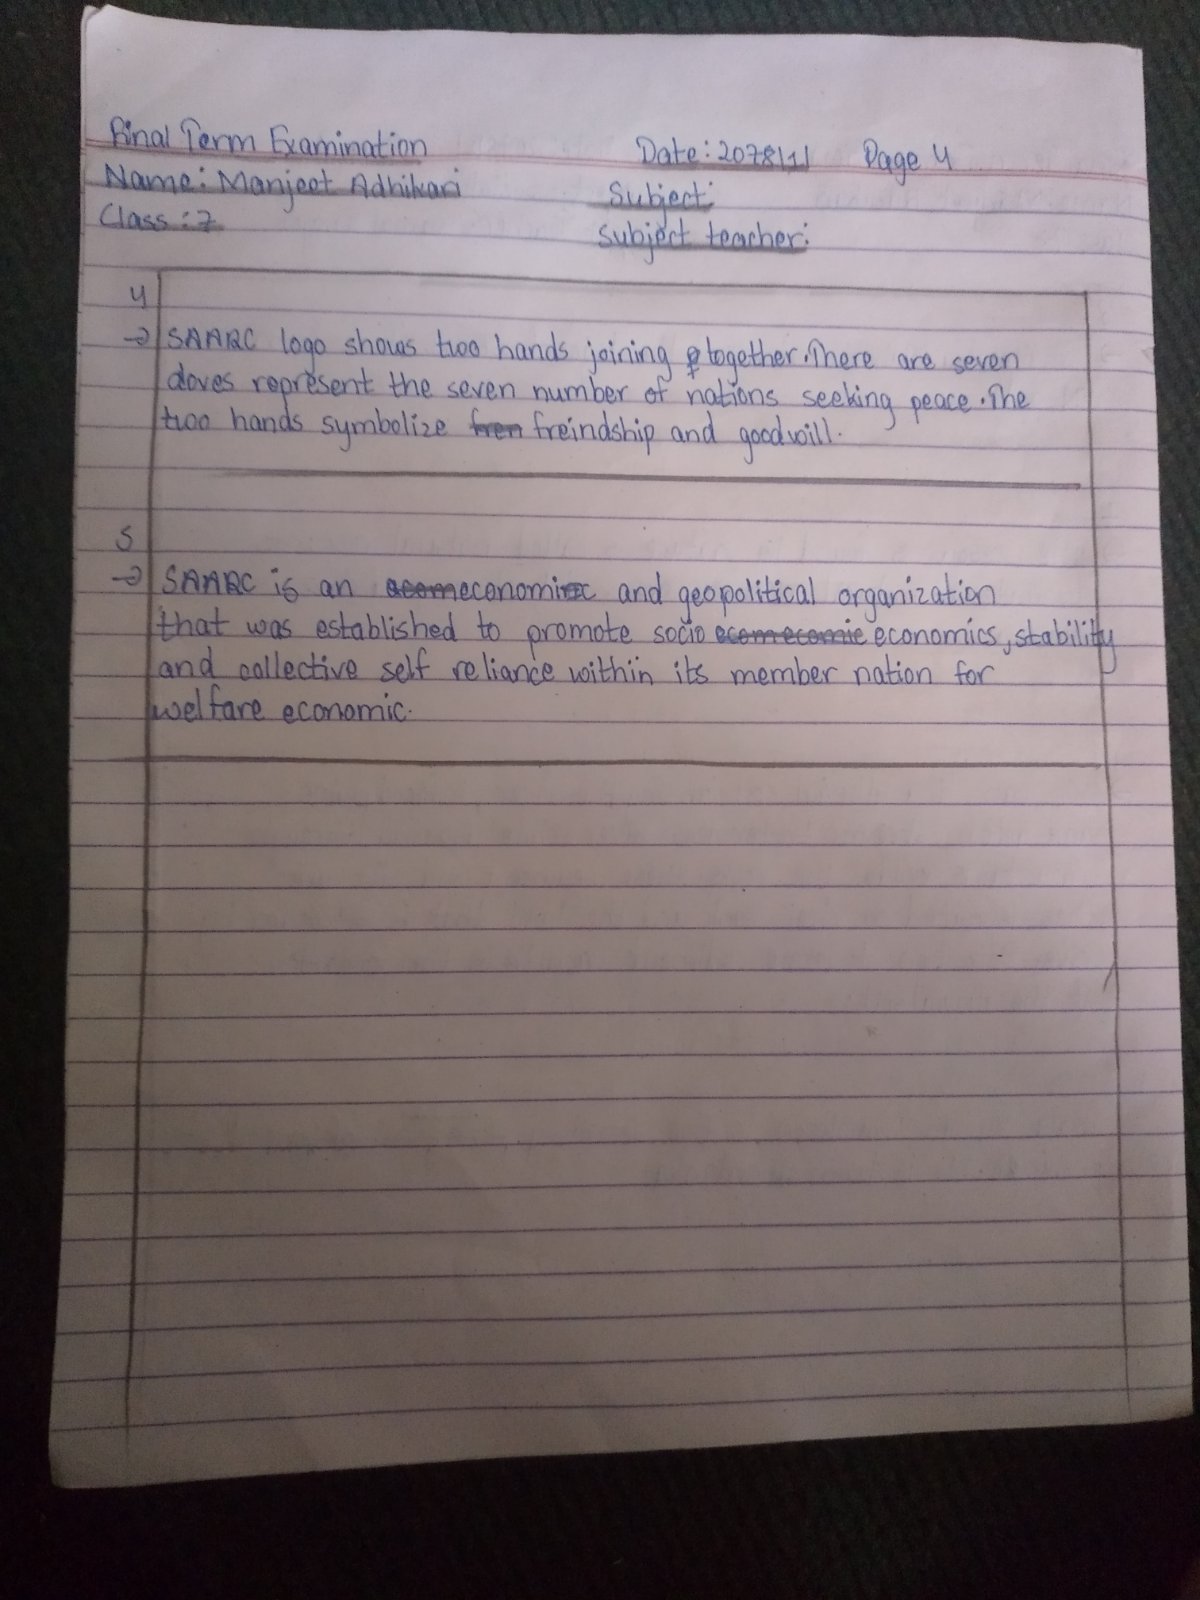 Final Term Examination Date: 2078|1| Page 4
Name: Manjeet Adhikari Subject:
Class: 7 Subject teacher:
4
→ SAARC logo shows two hands joining together. There are seven
doves represent the seven number of nations seeking peace. The
two hands symbolize freindship and goodwill.
5
→ SAARC is an economic and geopolitical organization
that was established to promote socio economics, stability
and collective self reliance within its member nation for
welfare economic.